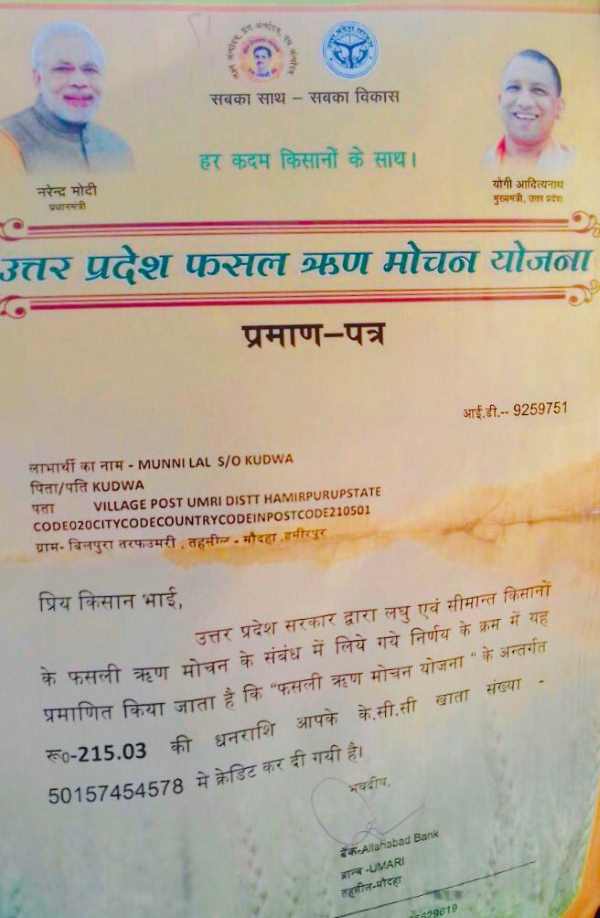 सबका साथ – सबका विकास
हर कदम किसानों के साथ।
नरेन्द्र मोदी
प्रधानमंत्री
योगी आदित्यनाथ
मुख्यमंत्री, उत्तर प्रदेश
उत्तर प्रदेश फसल ऋण मोचन योजना
प्रमाण–पत्र
आई.डी.-- 9259751
लाभार्थी का नाम - MUNNI LAL S/O KUDWA
पिता/पति KUDWA
पता VILLAGE POST UMRI DISTT HAMIRPURUPSTATE
CODE020CITYCODECOUNTRYCODEINPOSTCODE210501
ग्राम- बिलपुरा तरफउमरी , तहसील - मौदहा ,हमीरपुर
प्रिय किसान भाई,
उत्तर प्रदेश सरकार द्वारा लघु एवं सीमान्त किसानों
के फसली ऋण मोचन के संबंध में लिये गये निर्णय के क्रम में यह
प्रमाणित किया जाता है कि "फसली ऋण मोचन योजना " के अन्तर्गत
रू0-215.03 की धनराशि आपके के.सी.सी खाता संख्या -
50157454578 मे क्रेडिट कर दी गयी है।
भवदीय,
बैंक-Allahabad Bank
ब्रान्च -UMARI
तहसील-मौदहा